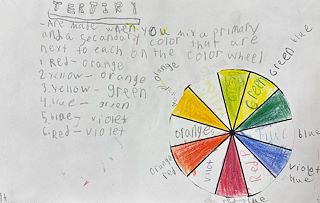 TERTIERY
- Are made when you mix a primary
and a secondary color that are
next to each on the color wheel
1. Red- orange
2. Yellow- orange
3. Yellow- green
4. blue- green
5. blue- violet
6. Red- violet
orange
green blue
green
oranges
blue
orange
red
violet
blue